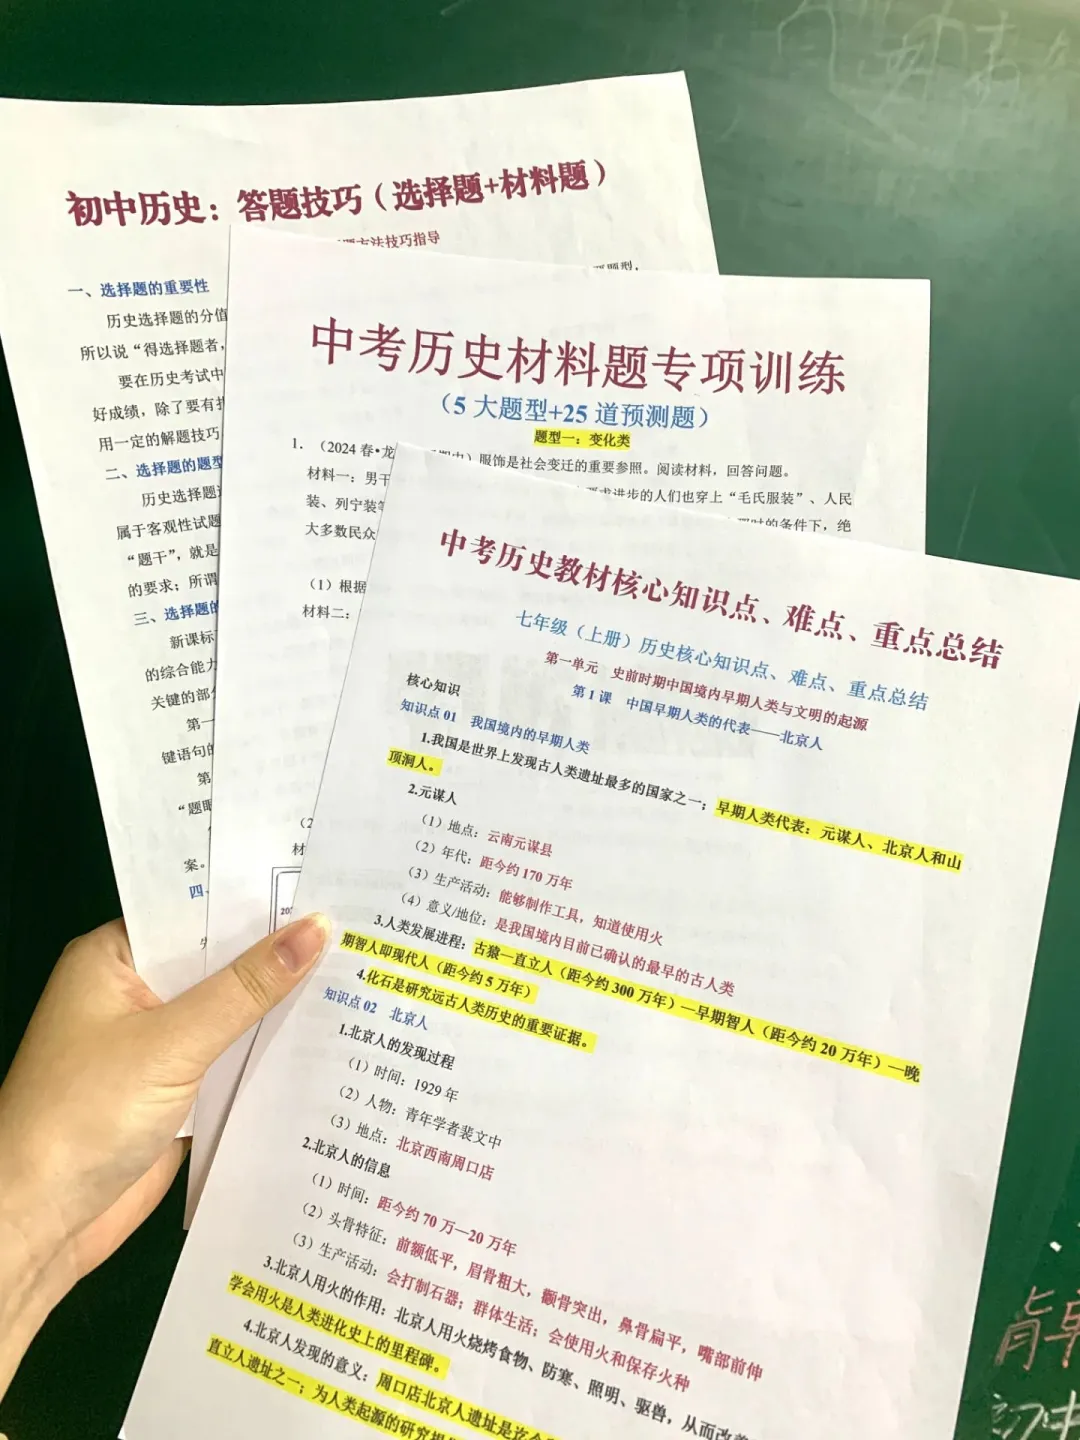 初中历史：答题技巧（选择题+材料题）
题方法技巧指导
题型，
一、选择题的重要性
历史选择题的分值
所以说“得选择题者，
要在历史考试中
好成绩，除了要有扎
用一定的解题技巧
二、选择题的题型
历史选择题
属于客观性试题
“题干”，就是
的要求；所谓
三、选择题的
新课标
的综合能力
关键的部分
第一
键语句的
第
“题眼
案。
四、
中考历史材料题专项训练
（5 大题型+25 道预测题）
题型一：变化类
1. （2024 春•龙 期中）服饰是社会变迁的重要参照。阅读材料，回答问题。
材料一：男干 要求进步的人们也穿上“毛氏服装”、人民
装、列宁装等 时的条件下，绝
大多数民众
（1）根据
材料二：
（2
材
中考历史教材核心知识点、难点、重点总结
七年级（上册）历史核心知识点、难点、重点总结
第一单元 史前时期中国境内早期人类与文明的起源
第 1 课 中国早期人类的代表——北京人
核心知识
知识点 01 我国境内的早期人类
1.我国是世界上发现古人类遗址最多的国家之一；早期人类代表：元谋人、北京人和山
顶洞人。
2.元谋人
（1）地点：云南元谋县
（2）年代：距今约 170 万年
（3）生产活动：能够制作工具，知道使用火
（4）意义/地位：是我国境内目前已确认的最早的古人类
3.人类发展进程：古猿—直立人（距今约 300 万年）—早期智人（距今约 20 万年）—晚
期智人即现代人（距今约 5 万年）
4.化石是研究远古人类历史的重要证据。
知识点 02 北京人
1.北京人的发现过程
（1）时间：1929 年
（2）人物：青年学者裴文中
（3）地点：北京西南周口店
2.北京人的信息
（1）时间：距今约 70 万—20 万年
（2）头骨特征：前额低平，眉骨粗大，颧骨突出，鼻骨扁平，嘴部前伸
（3）生产活动：会打制石器；群体生活；会使用火和保存火种
3.北京人用火的作用：北京人用火烧烤食物、防寒、照明、驱兽，从而改善
学会用火是人类进化史上的里程碑。
4.北京人发现的意义：周口店北京人遗址是迄今
直立人遗址之一；为人类起源的研究提供